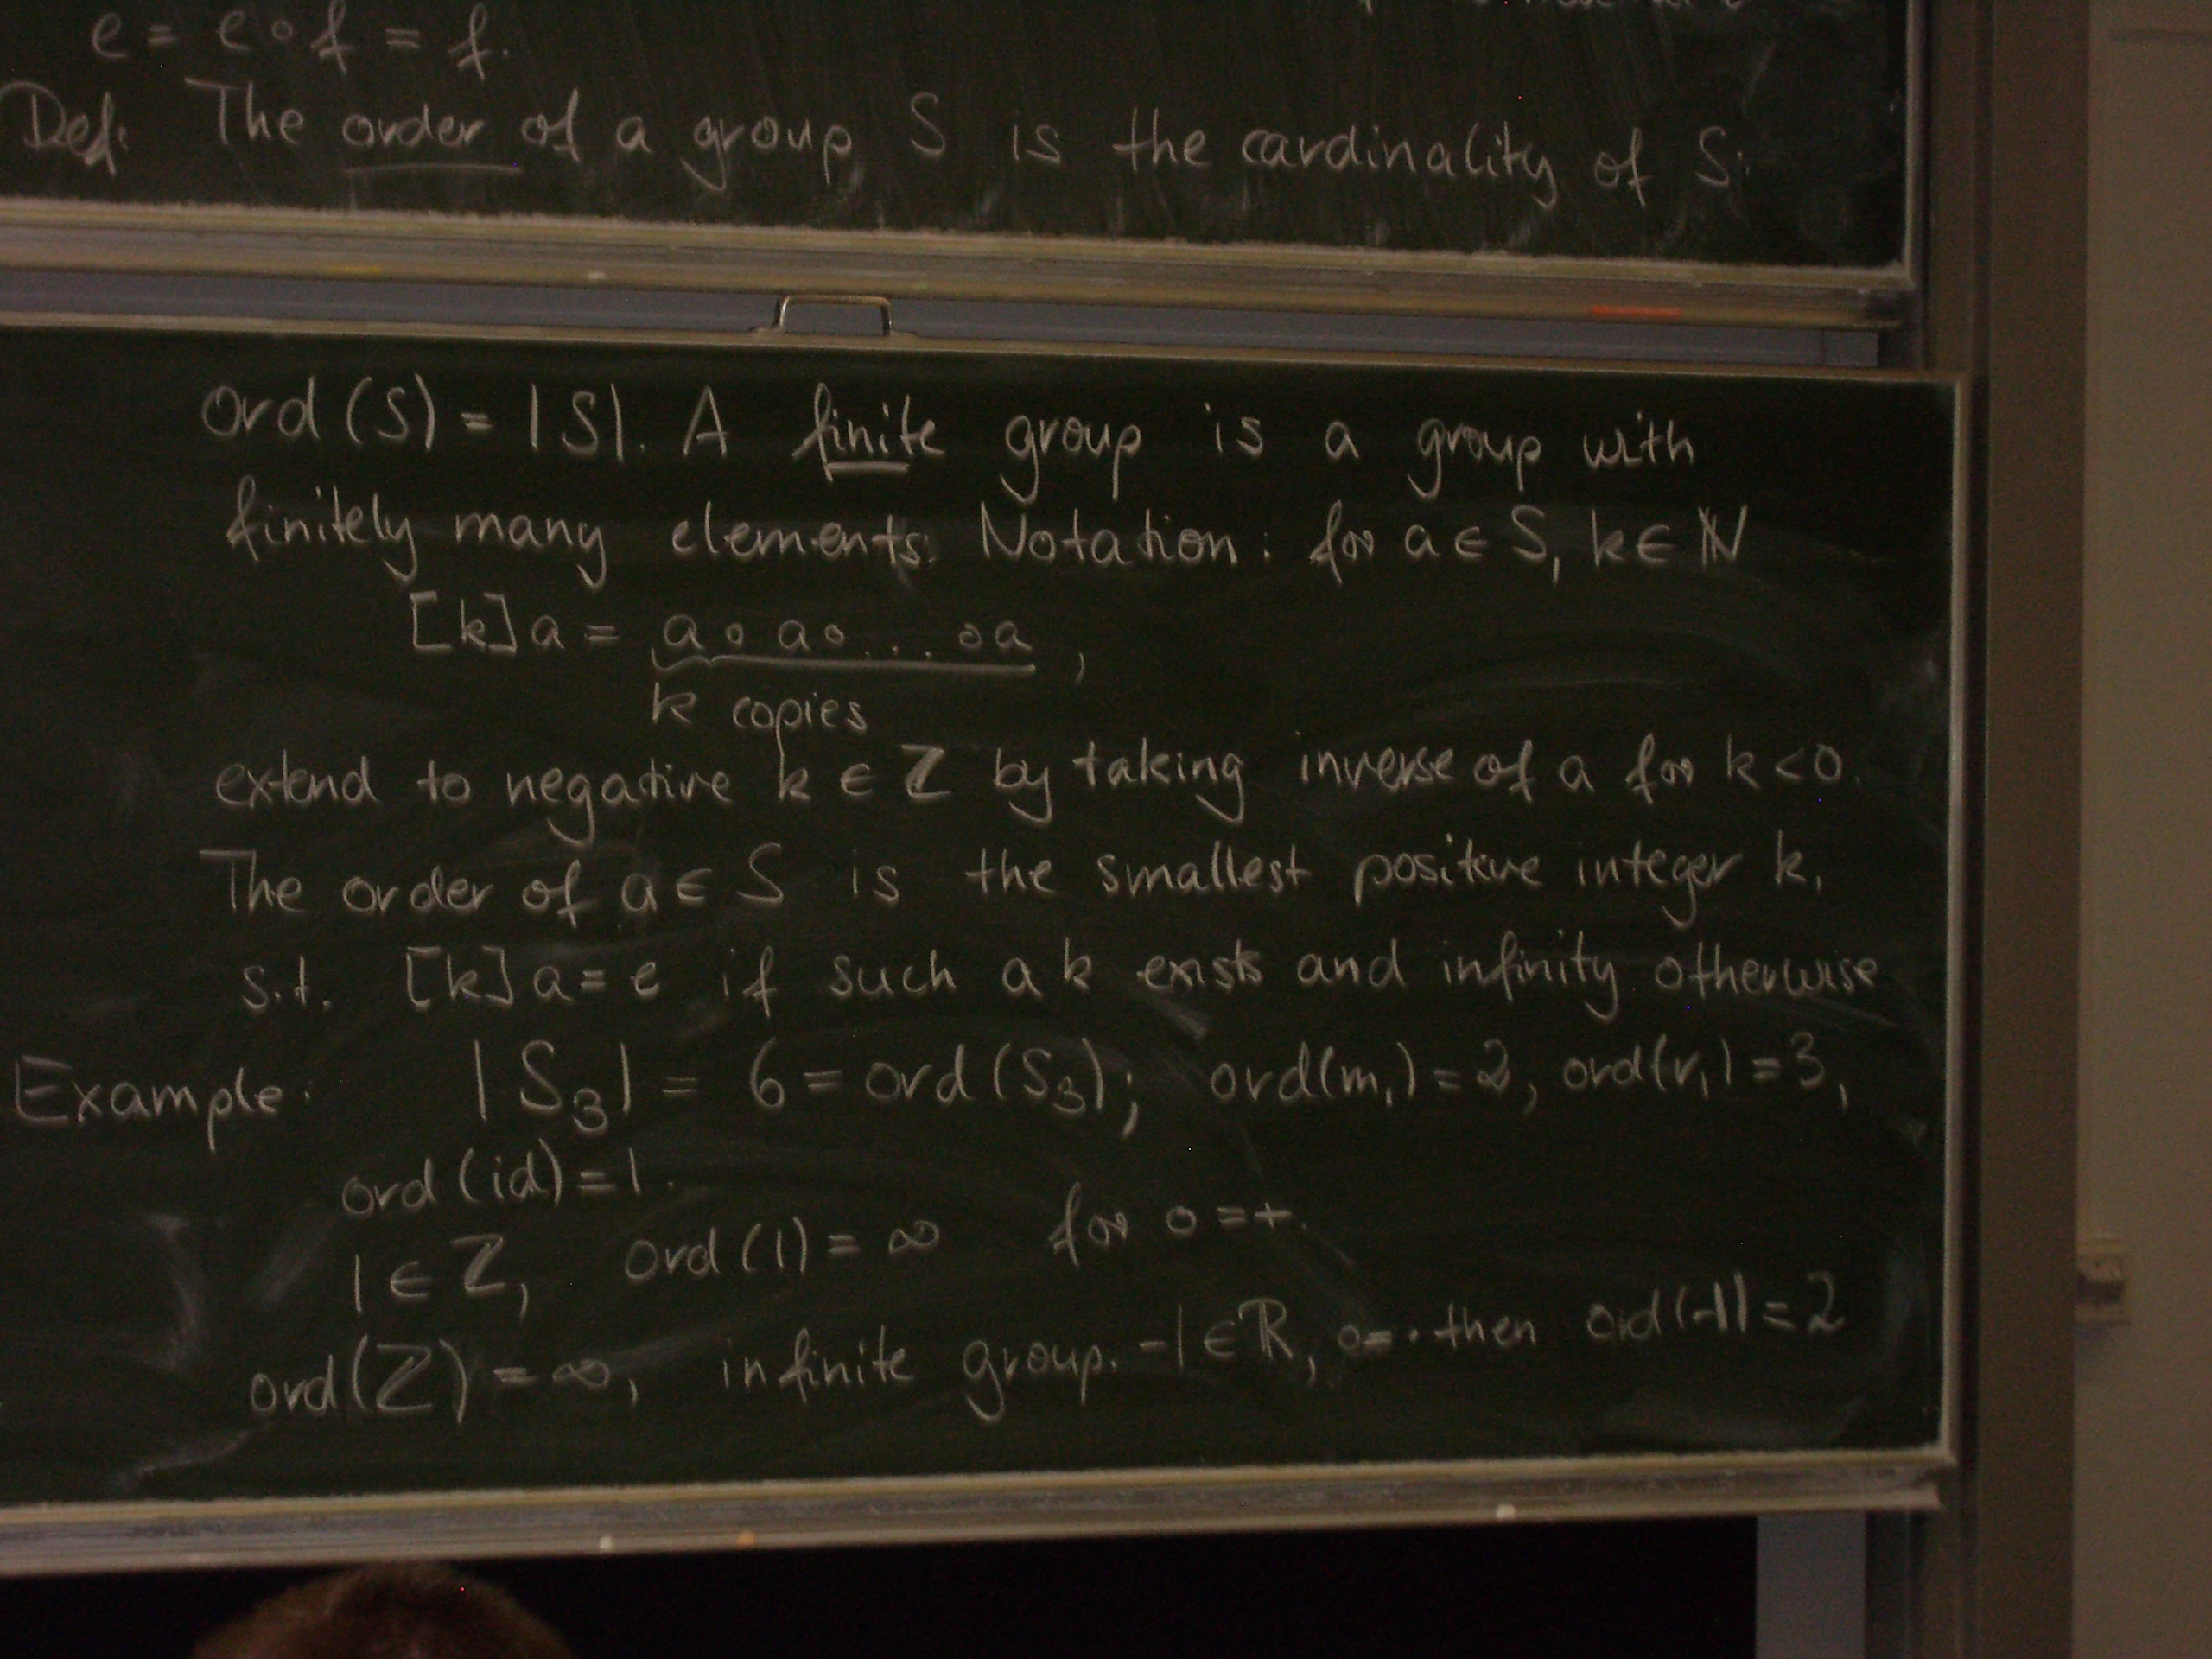 e = e∘f = f.
Def: The order of a group S is the cardinality of S.
ord(S) = |S|. A finite group is a group with
finitely many elements. Notation: for a ∈ S, k ∈ ℕ
[k]a = a∘a∘...∘a,
k copies
extend to negative k ∈ ℤ by taking inverse of a for k<0.
The order of a ∈ S is the smallest positive integer k,
s.t. [k]a = e if such a k exists and infinity otherwise
Example: |S₃| = 6 = ord(S₃); ord(m₁) = 2, ord(r₁) = 3,
ord(id) = 1.
1 ∈ ℤ, ord(1) = ∞ for ∘ = +.
ord(ℤ) = ∞, infinite group. -1 ∈ ℝ, ∘ = · then ord(-1) = 2